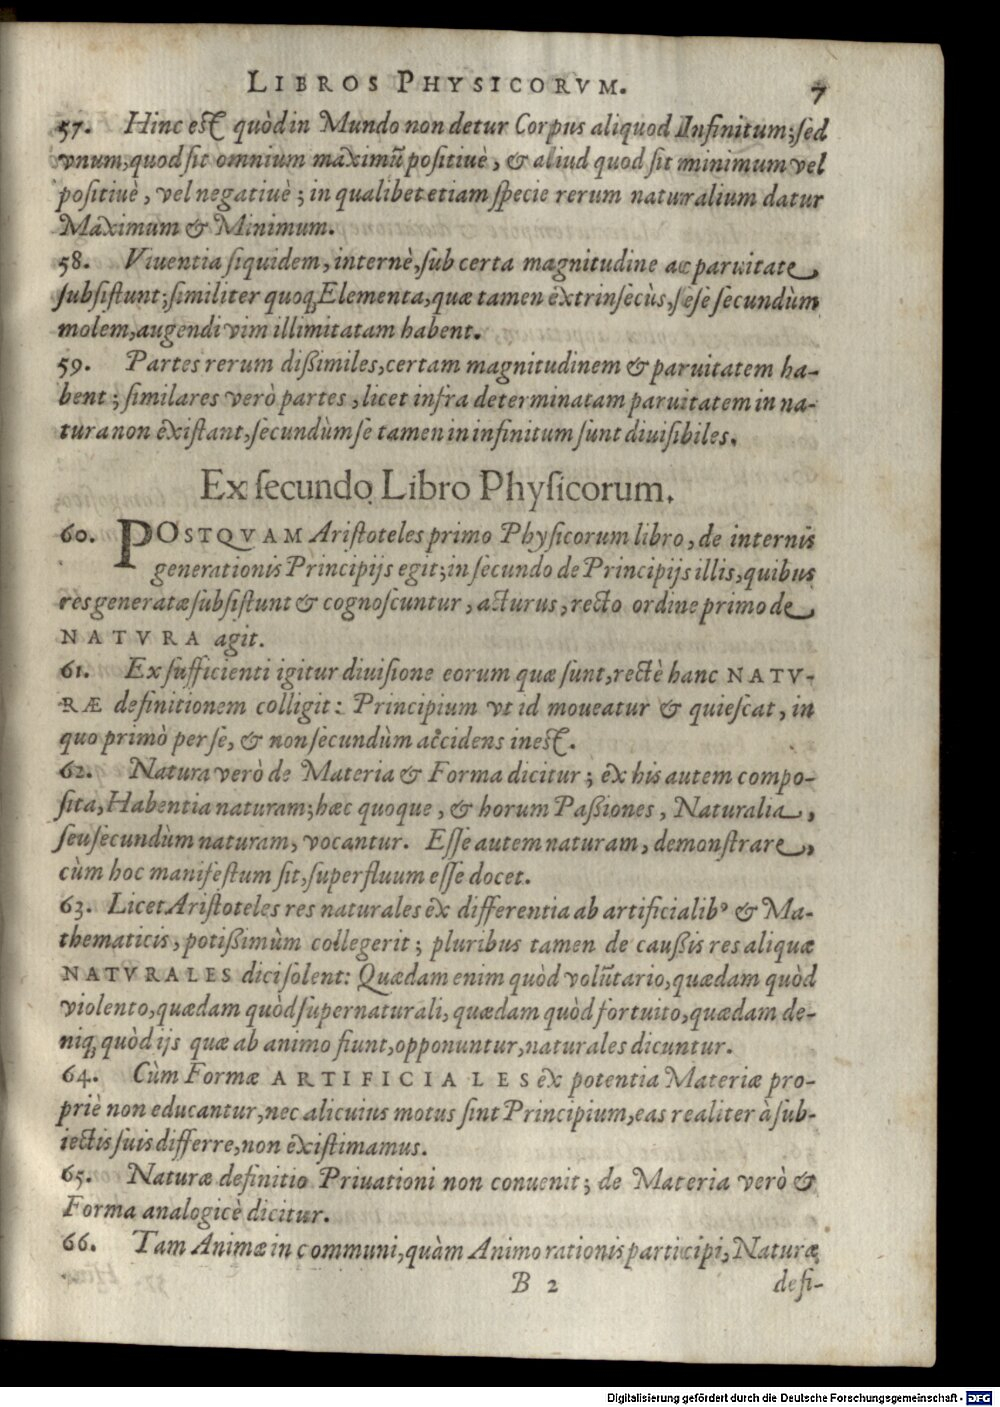 LIBROS PHYSICORVM. 7
57. Hinc est quòd in Mundo non detur Corpus aliquod Infinitum; sed
vnum, quod sit omnium maximũ positiuè, & aliud quod sit minimum vel
positiuè, vel negatiuè; in qualibet etiam specie rerum naturalium datur
Maximum & Minimum.
58. Viuentia siquidem, internè, sub certa magnitudine ac paruitate
subsistunt; similiter quoq; Elementa, quæ tamen extrinsecùs, sese secundùm
molem, augendi vim illimitatam habent.
59. Partes rerum dißimiles, certam magnitudinem & paruitatem ha-
bent; similares verò partes, licet infra determinatam paruitatem in na-
tura non existant, secundùm se tamen in infinitum sunt diuisibiles.
Ex secundo Libro Physicorum.
60. POSTQVAM Aristoteles primo Physicorum libro, de internis
generationis Principijs egit; in secundo de Principijs illis, quibus
res generatæ subsistunt & cognoscuntur, acturus, recto ordine primo de
NATVRA agit.
61. Ex sufficienti igitur diuisione eorum quæ sunt, rectè hanc NATV-
RÆ definitionem colligit: Principium vt id moueatur & quiescat, in
quo primò per se, & non secundùm accidens inest.
62. Natura verò de Materia & Forma dicitur; ex his autem compo-
sita, Habentia naturam; hæc quoque, & horum Paßiones, Naturalia,
seu secundùm naturam, vocantur. Esse autem naturam, demonstrare,
cùm hoc manifestum sit, superfluum esse docet.
63. Licet Aristoteles res naturales ex differentia ab artificialibꝰ & Ma-
thematicis, potißimùm collegerit; pluribus tamen de caußis res aliquæ
NATVRALES dici solent: Quædam enim quòd volũtario, quædam quòd
violento, quædam quòd supernaturali, quædam quòd fortuito, quædam de-
niq; quòd ijs quæ ab animo fiunt, opponuntur, naturales dicuntur.
64. Cùm Formæ ARTIFICIALES ex potentia Materiæ pro-
priè non educantur, nec alicuius motus sint Principium, eas realiter à sub-
iectis suis differre, non existimamus.
65. Naturæ definitio Priuationi non conuenit; de Materia verò &
Forma analogicè dicitur.
66. Tam Animæ in communi, quàm Animo rationis participi, Naturæ
B 2 defi-
Digitalisierung gefördert durch die Deutsche Forschungsgemeinschaft - DFG